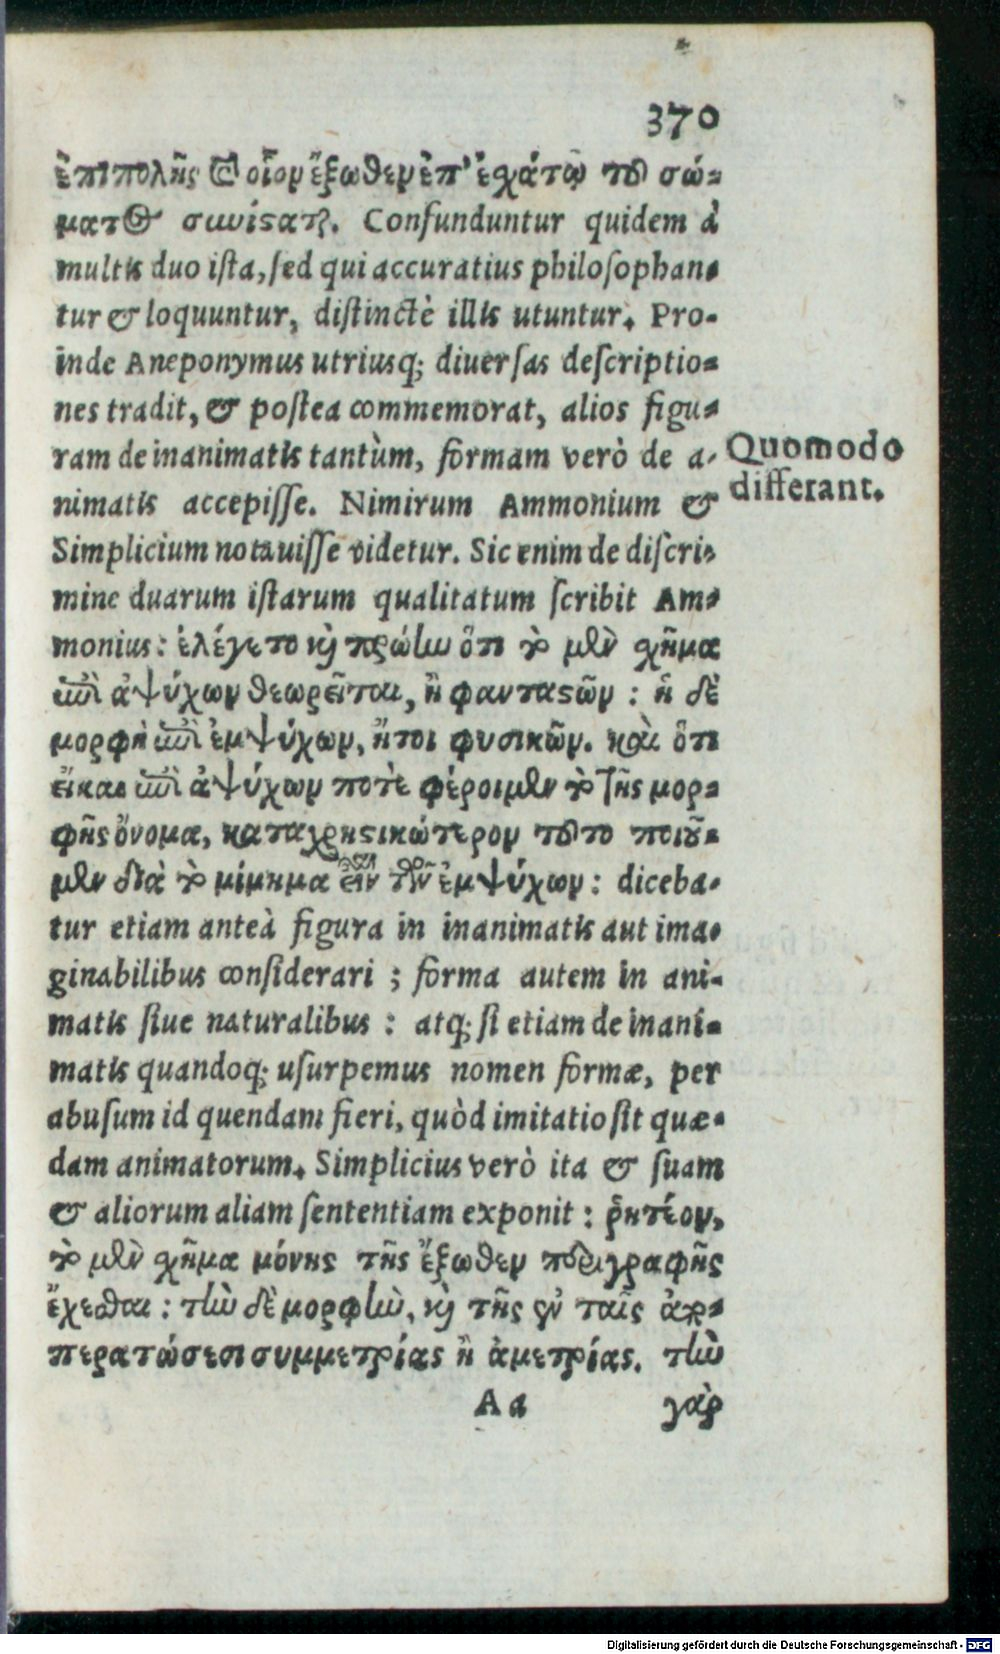 370
ἐπιπολῆς καὶ οἷον ἔξωθεν ἐπ' ἐσχάτῳ τοῦ σώ-
ματος συνίσαται. Confunduntur quidem à
multis duo ista, sed qui accuratius philosophan-
tur & loquuntur, distinctè illis utuntur. Pro-
inde Aneponymus utriusq; diuersas descriptio-
nes tradit, & postea commemorat, alios figu-
ram de inanimatis tantùm, formam verò de a-
nimatis accepisse. Nimirum Ammonium &
Quomodo
differant.
Simplicium notauisse videtur. Sic enim de discri-
mine duarum istarum qualitatum scribit Am-
monius: ἐλέγετο καὶ πρώην ὅτι τὸ μὲν σχῆμα
ἐπὶ ἀψύχων θεωρεῖται, ἢ φανταστῶν: ἡ δὲ
μορφὴ ἐπὶ ἐμψύχων, ἤτοι φυσικῶν. καὶ ὅτι
εἴ και ἐπὶ ἀψύχων ποτὲ φέροιμεν τὸ τῆς μορ-
φῆς ὄνομα, καταχρηστικώτερον τοῦτο ποιοῦ-
μεν διὰ τὸ μίμημα εἶναι τῶν ἐμψύχων: diceba-
tur etiam anteà figura in inanimatis aut ima-
ginabilibus considerari; forma autem in ani-
matis siue naturalibus: atq; si etiam de inani-
matis quandoq; usurpemus nomen formæ, per
abusum id quendam fieri, quòd imitatio sit quæ-
dam animatorum. Simplicius verò ita & suam
& aliorum aliam sententiam exponit: ῥητέον,
τὸ μὲν σχῆμα μόνης τῆς ἔξωθεν περιγραφῆς
ἔχεσθαι: τὴν δὲ μορφὴν, καὶ τῆς ἐν ταῖς
περατώσεσι συμμετρίας ἢ ἀμετρίας. τὴν
Aa γὰρ
Digitalisierung gefördert durch die Deutsche Forschungsgemeinschaft - DFG